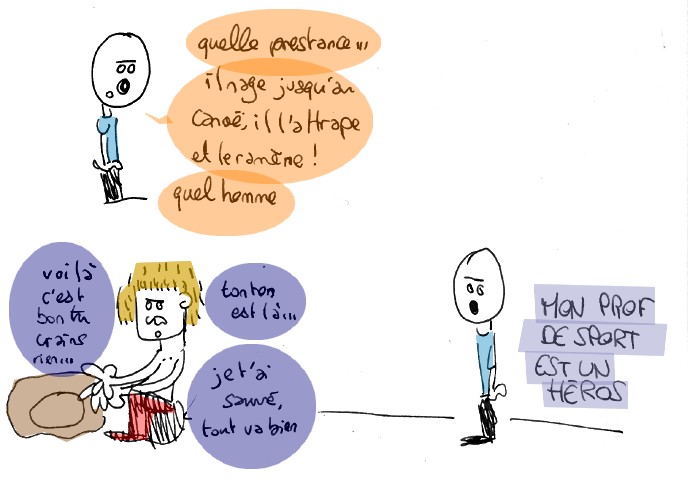 quelle prestance...
il nage jusqu'au
canoé, il l'attrape
et le ramène !
quel homme
voilà
c'est
bon tu
crains
rien...
tonton
est là...
je t'ai
sauvé,
tout va bien
MON PROF
DE SPORT
EST UN
HÉROS